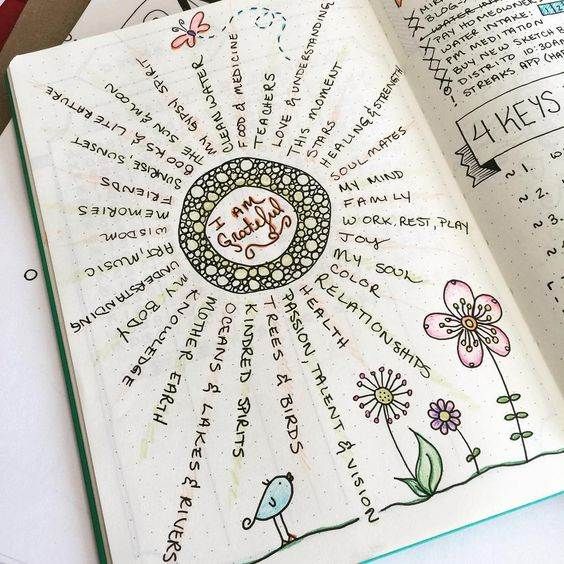 I AM
Grateful
CLEAN WATER
FOOD & MEDICINE
TEACHERS
LOVE & UNDERSTANDING
THIS MOMENT
STARS
HEALING & STRENGTH
SOULMATES
MY MIND
FAMILY
WORK, REST, PLAY
JOY
MY SOUL
COLOR
RELATIONSHIPS
HEALTH
PASSION, TALENT & VISION
TREES & BIRDS
KINDRED SPIRITS
OCEANS & LAKES & RIVERS
MOTHER EARTH
KNOWLEDGE
MY BODY
UNDERSTANDING
ART, MUSIC
WISDOM
MEMORIES
FRIENDS
SUNRISE, SUNSET
BOOKS & LITERATURE
THE SUN & MOON
MY GYPSY SPIRIT
BLOG
WATER INTAKE
PAY HOMEOWNER
WATER INTAKE: 1 2
PM MEDITATION
BUY NEW SKETCH B
DISTRITO 10:30A
STREAKS APP (HA
4 KEYS
~ 1.
~ 2.
~ 3.
~ 4.